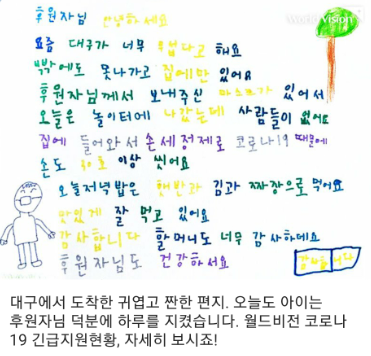 World Vision
후원자님 안녕하세요
요즘 대구가 너무 무섭다고 해요
밖에도 못나가고 집에만 있어요
후원자님께서 보내주신 마스크가 있어서
오늘은 놀이터에 나갔는데 사람들이 없어요
집에 들어와서 손세정제로 코로나19 때문에
손도 30초 이상 씻어요
오늘저녁밥은 햇반과 김과 짜장으로 먹어요
맛있게 잘 먹고 있어요
감사합니다 할머니도 너무 감사하데요
후원자님도 건강하서요
감사합니다
대구에서 도착한 귀엽고 짠한 편지. 오늘도 아이는
후원자님 덕분에 하루를 지켰습니다. 월드비전 코로나
19 긴급지원현황, 자세히 보시죠!